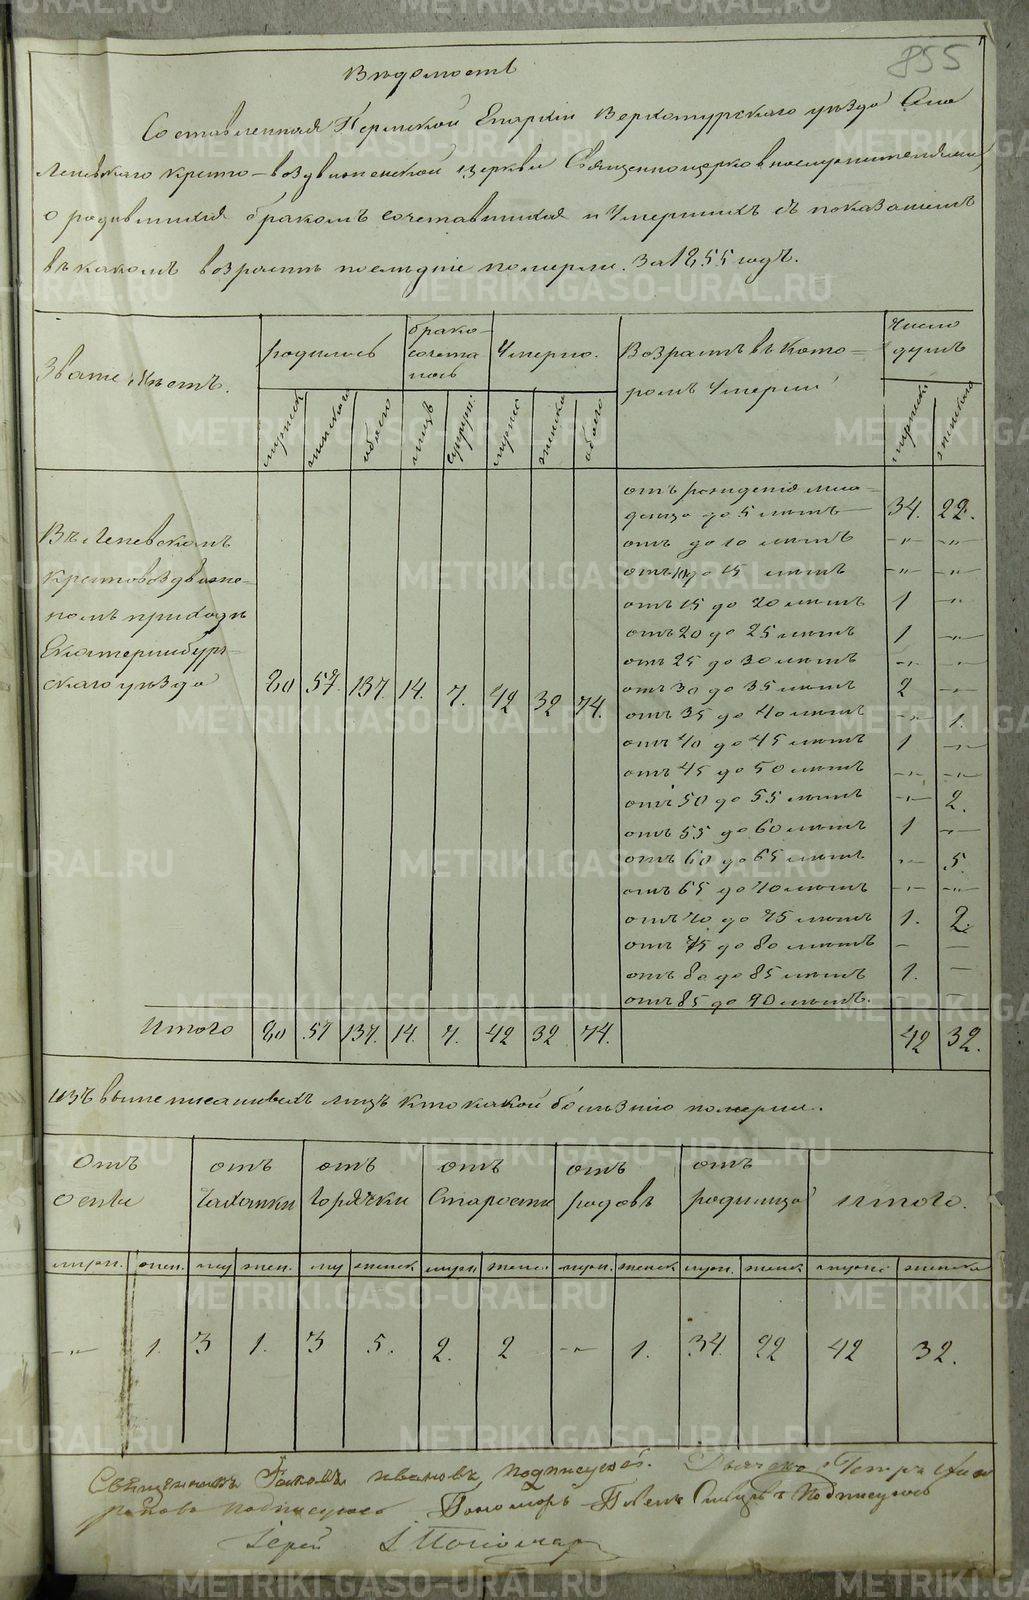 855
Вѣдомость
Составленная Пермской Епархіи Верхотурскаго уѣзда
Крестовоздвиженской церкви Священноцерковнослужителями
о родившихся бракомъ сочетавшихся и Умершихъ съ показаніемъ
въ какомъ возрастѣ послѣдніе померли. За 1855 годъ.
Званіе мѣстъ. родилось брако- Умерло. Возрастъ въ кото- Число
сочета лось ромъ Умерли душъ
мужск женскаго обоего лицъ супруж. мужес женска обоего мужеск женскаго
отъ рожденія мла-
денца до 5 лѣтъ 34. 22.
Въ Лепевскомъ отъ до 10 лѣтъ -"- -"-
Крестовоздвижен- отъ 10 до 15 лѣтъ -"- -"-
номъ приходѣ отъ 15 до 20 лѣтъ 1 -"-
Екатеринбург- отъ 20 до 25 лѣтъ 1 -"-
отъ 25 до 30 лѣтъ -"- -"-
скаго уѣзда 80 57. 137 14. 7. 42 32 74. отъ 30 до 35 лѣтъ 2 -"-
отъ 35 до 40 лѣтъ -"- 1.
отъ 40 до 45 лѣтъ 1 -"-
отъ 45 до 50 лѣтъ -"- -"-
отъ 50 до 55 лѣтъ -"- 2.
отъ 55 до 60 лѣтъ 1 -"-
отъ 60 до 65 лѣтъ -"- 5.
отъ 65 до 70 лѣтъ -"- -"-
отъ 70 до 75 лѣтъ 1. 2.
отъ 75 до 80 лѣтъ - -
отъ 80 до 85 лѣтъ 1. -
отъ 85 до 90 лѣтъ. - -
Итого 80 57 137. 14. 7. 42 32 74. 42 32.
изъ выше писанныхъ лицъ кто какой болѣзнію померли.
Отъ отъ отъ отъ отъ отъ
Оспы Чахотки горячки Старости родовъ родимца итого.
мужч. жен. му жен. му женск мужч. женс. мужч. женск мужч. женск мужес женска
-"- 1. 3 1. 3 5. 2. 2 -"- 1. 34. 22 42 32.
Священникъ Іаковъ Ивановъ подписуюсь. Дьячекъ Петръ
подписуюсь Пономарь Подписуюсь
Іерей І. Пономар
METRIKI.GASO-URAL.RU